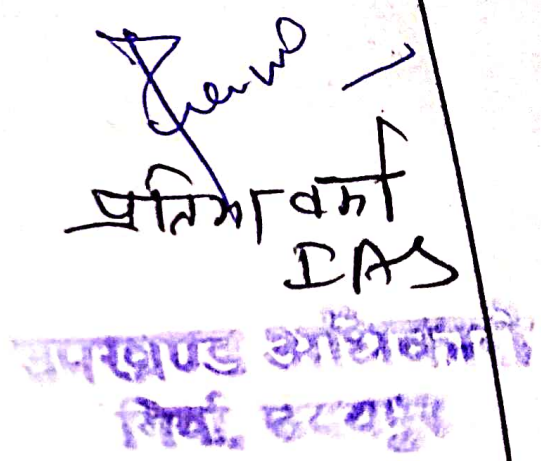 प्रतिमा वर्मा
IAS
उपखण्ड अधिकारी
गिर्वा, उदयपुर